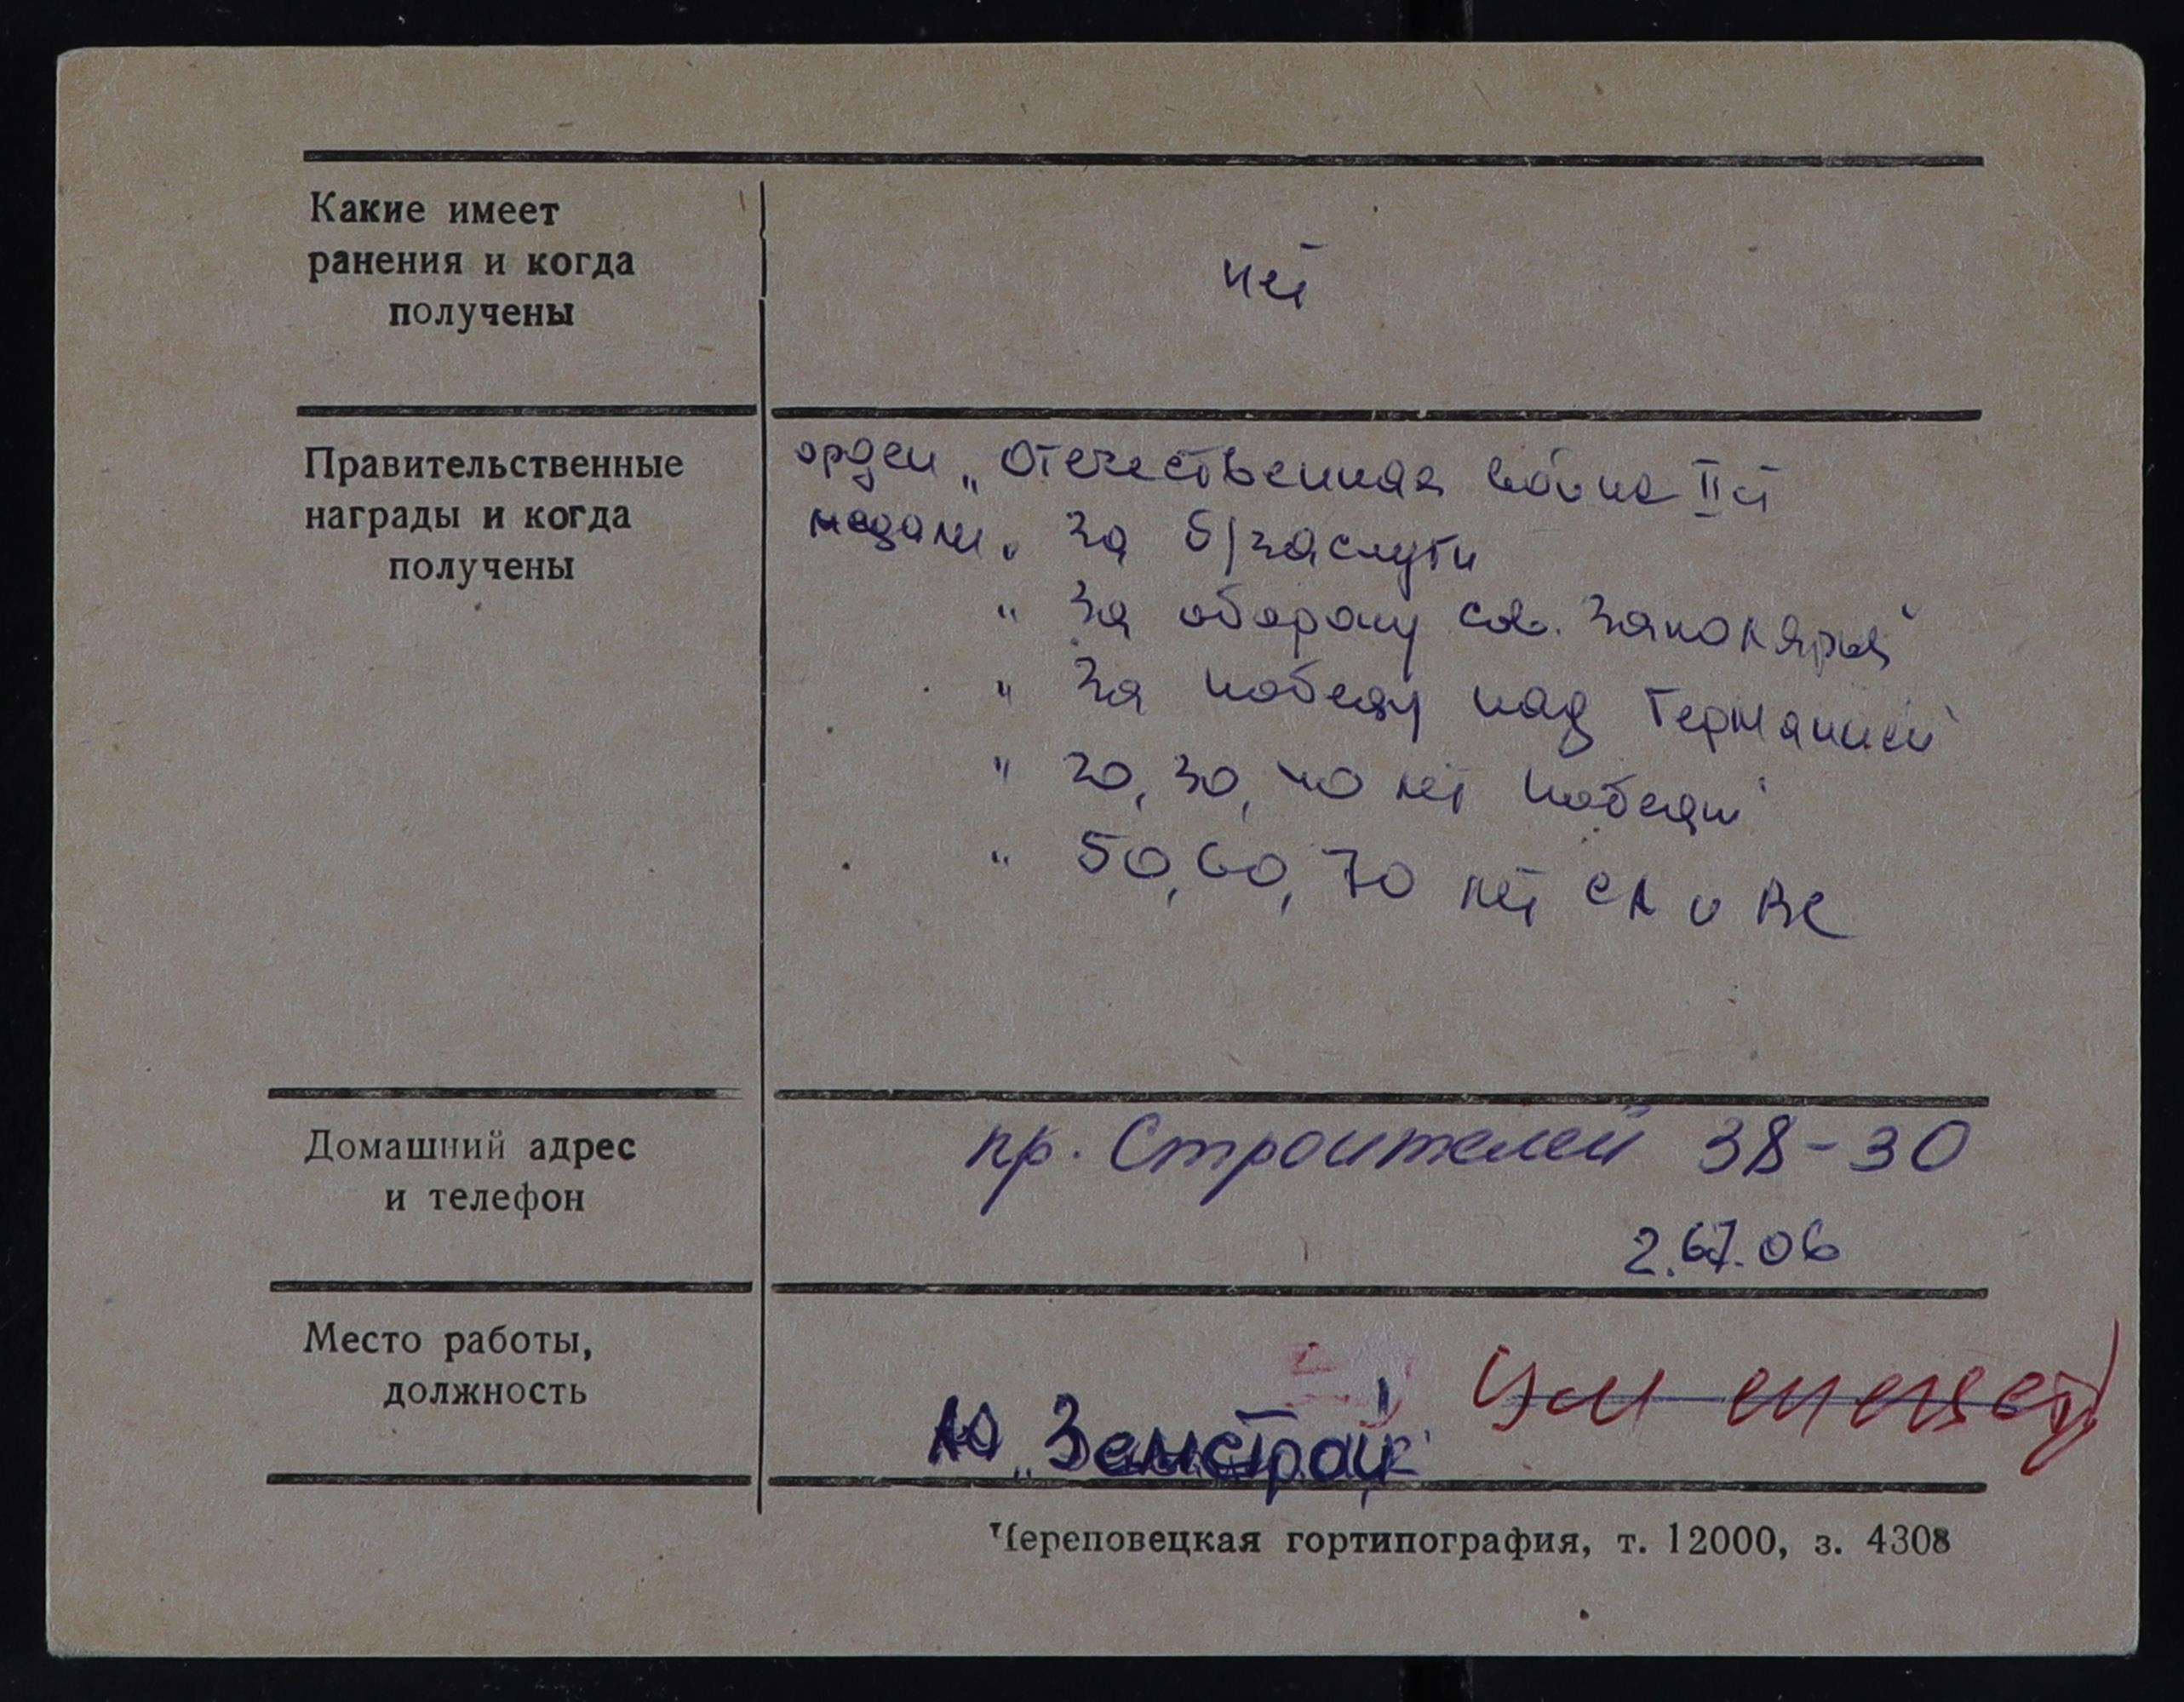 Какие имеет
ранения и когда
получены
нет
Правительственные
награды и когда
получены
орден „Отечественная война II ст
медали „За б/заслуги
" За оборону сов. Заполярья"
" За победу над Германией"
" 20, 30, 40 лет победы"
" 50, 60, 70 лет СА и ВС
Домашний адрес
и телефон
пр. Строителей 38-30
2.67.06
Место работы,
должность
„Земстрой"
Череповецкая гортипография, т. 12000, з. 4308